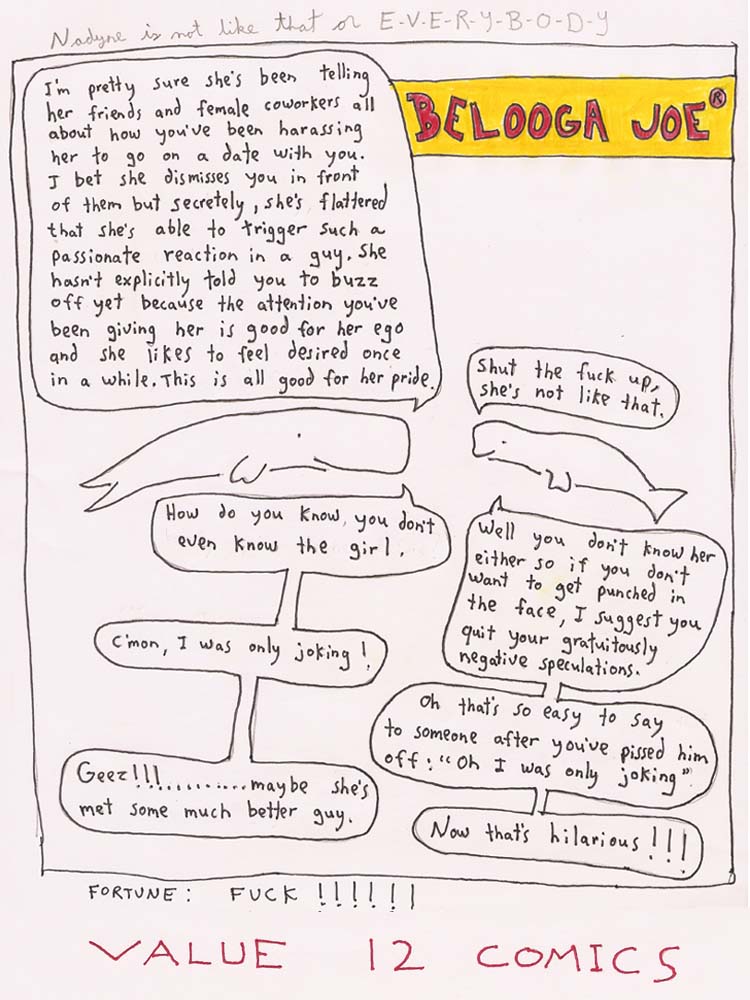 Nadyne is not like that or E-V-E-R-Y-B-O-D-Y
BELOOGA JOE®
I'm pretty sure she's been telling
her friends and female coworkers all
about how you've been harassing
her to go on a date with you.
I bet she dismisses you in front
of them but secretely, she's flattered
that she's able to trigger such a
passionate reaction in a guy. She
hasn't explicitly told you to buzz
off yet because the attention you've
been giving her is good for her ego
and she likes to feel desired once
in a while. This is all good for her pride.
Shut the fuck up,
she's not like that.
How do you know, you don't
even know the girl.
Well you don't know her
either so if you don't
want to get punched in
the face, I suggest you
quit your gratuitously
negative speculations.
C'mon, I was only joking!
Oh that's so easy to say
to someone after you've pissed him
off: "Oh I was only joking"
Geez!!!..........maybe she's
met some much better guy.
Now that's hilarious!!!
FORTUNE: FUCK !!!!!!
VALUE 12 COMICS